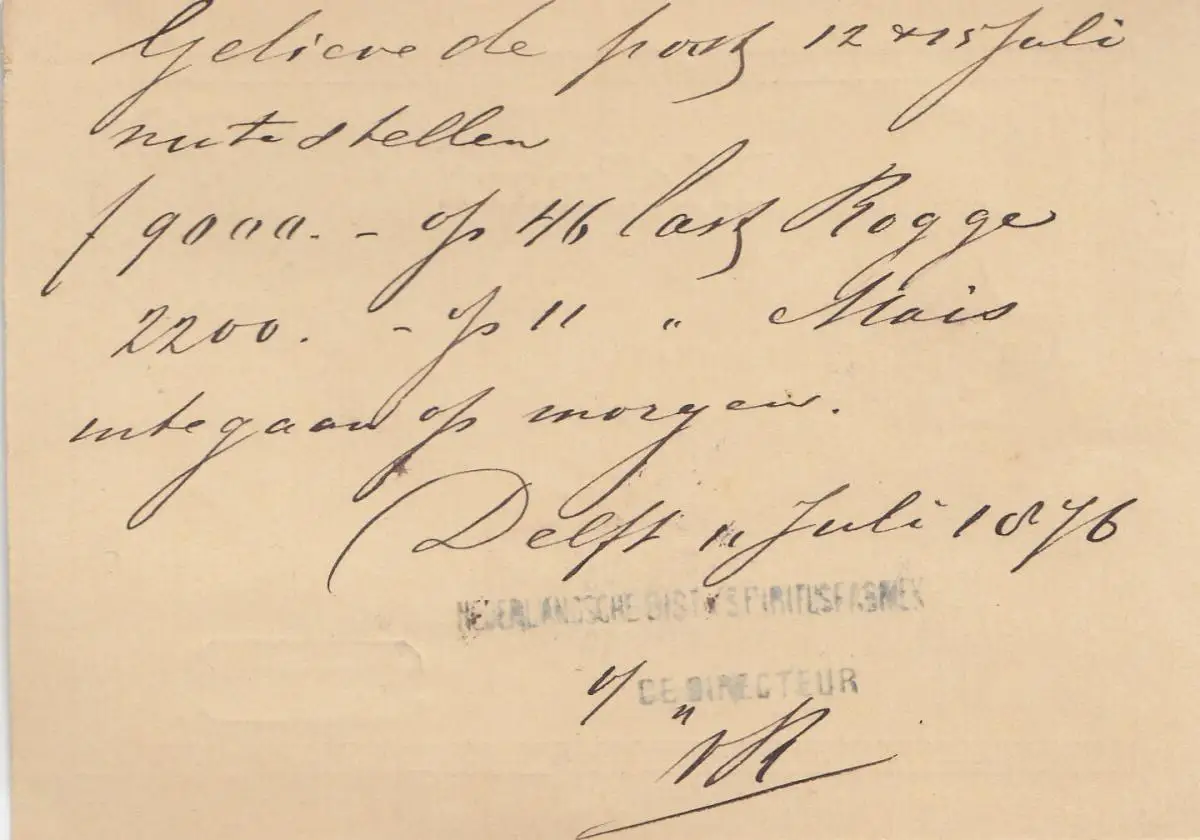 Gelieve de post 12 & 15 Juli
stellen
f 9000. - op 46 last Rogge
2200. - op 11 " Mais
integaan op morgen.
Delft 11 Juli 1876
NEDERLANDSCHE SPIRITUSFABRIEK
o/ DE DIRECTEUR
"
vR